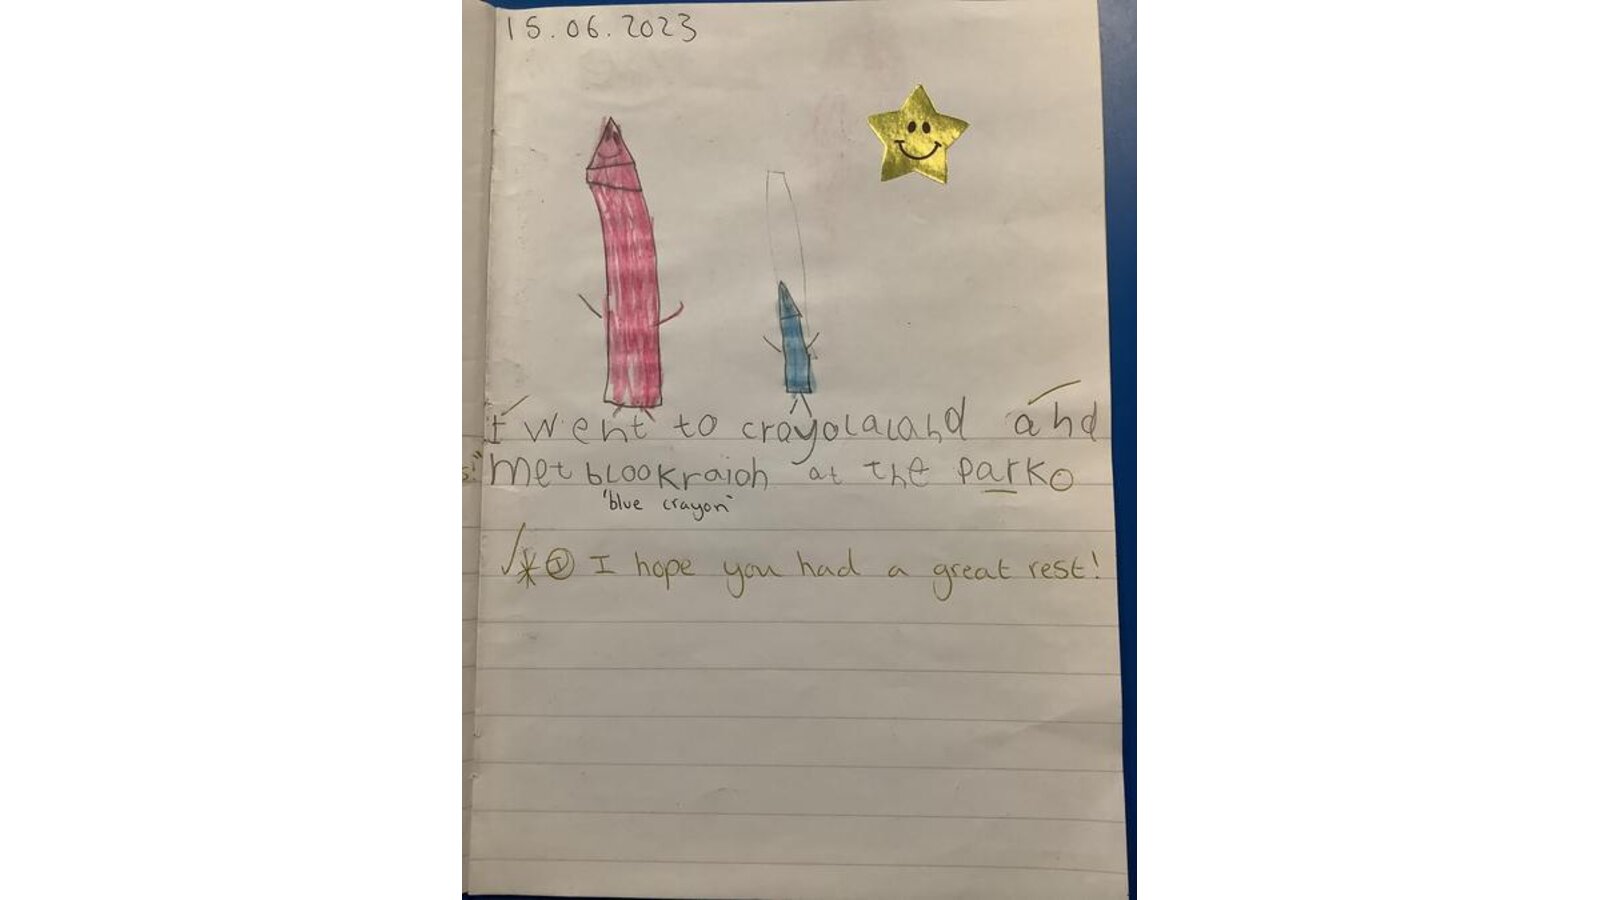 15.06.2023
I went to crayolaland and
met blookraion at the park
'blue crayon'
I hope you had a great rest!